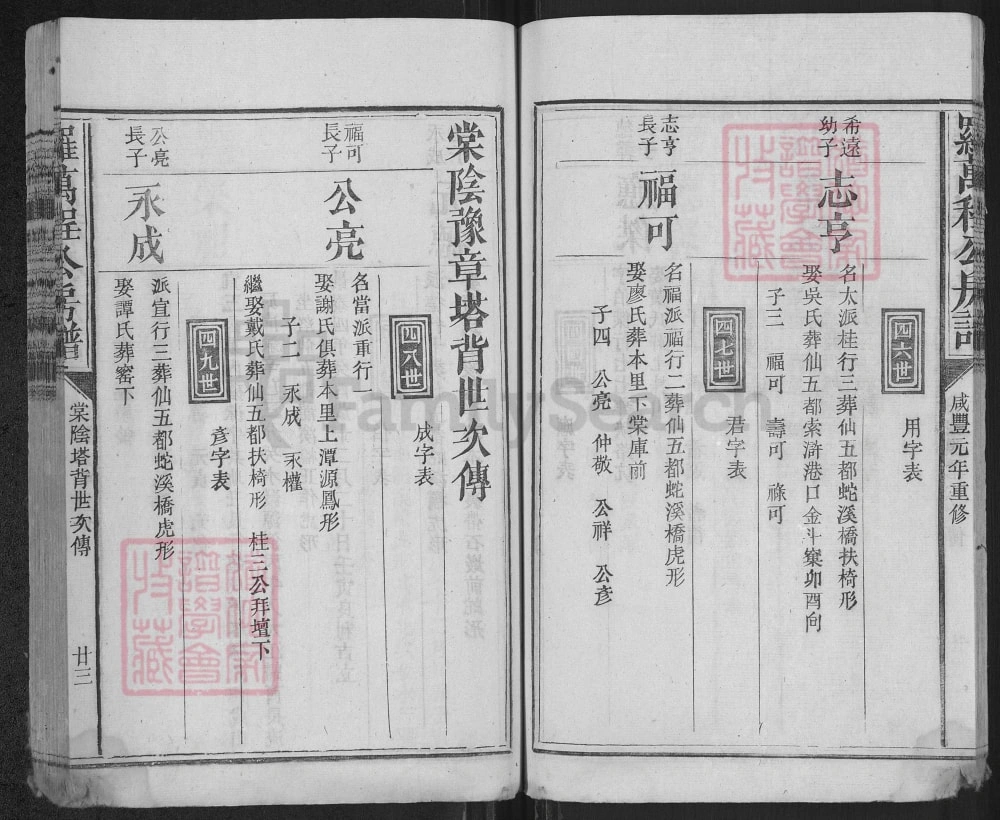 咸豐元年重修
四六世
用字表
希遠
幼子
志亨
名太派桂行三葬仙五都蛇溪橋扶椅形
娶吳氏葬仙五都索滸港口金斗窠卯酉向
子三　福可　壽可　祿可
四七世
君字表
志亨
長子
福可
名福派福行二葬仙五都蛇溪橋虎形
娶廖氏葬本里下棠庫前
子四　公亮　仲敬　公祥　公彥
棠陰豫章塔背世次傳
四八世
成字表
福可
長子
公亮
名當派重行一
娶謝氏俱葬本里上潭源鳳形
子二　永成　永權
繼娶戴氏葬仙五都扶椅形　桂三公拜壇下
四九世
彥字表
公亮
長子
永成
派宜行三葬仙五都蛇溪橋虎形
娶譚氏葬窰下
羅萬程公房譜
棠陰塔背世次傳
廿三
FamilySearch